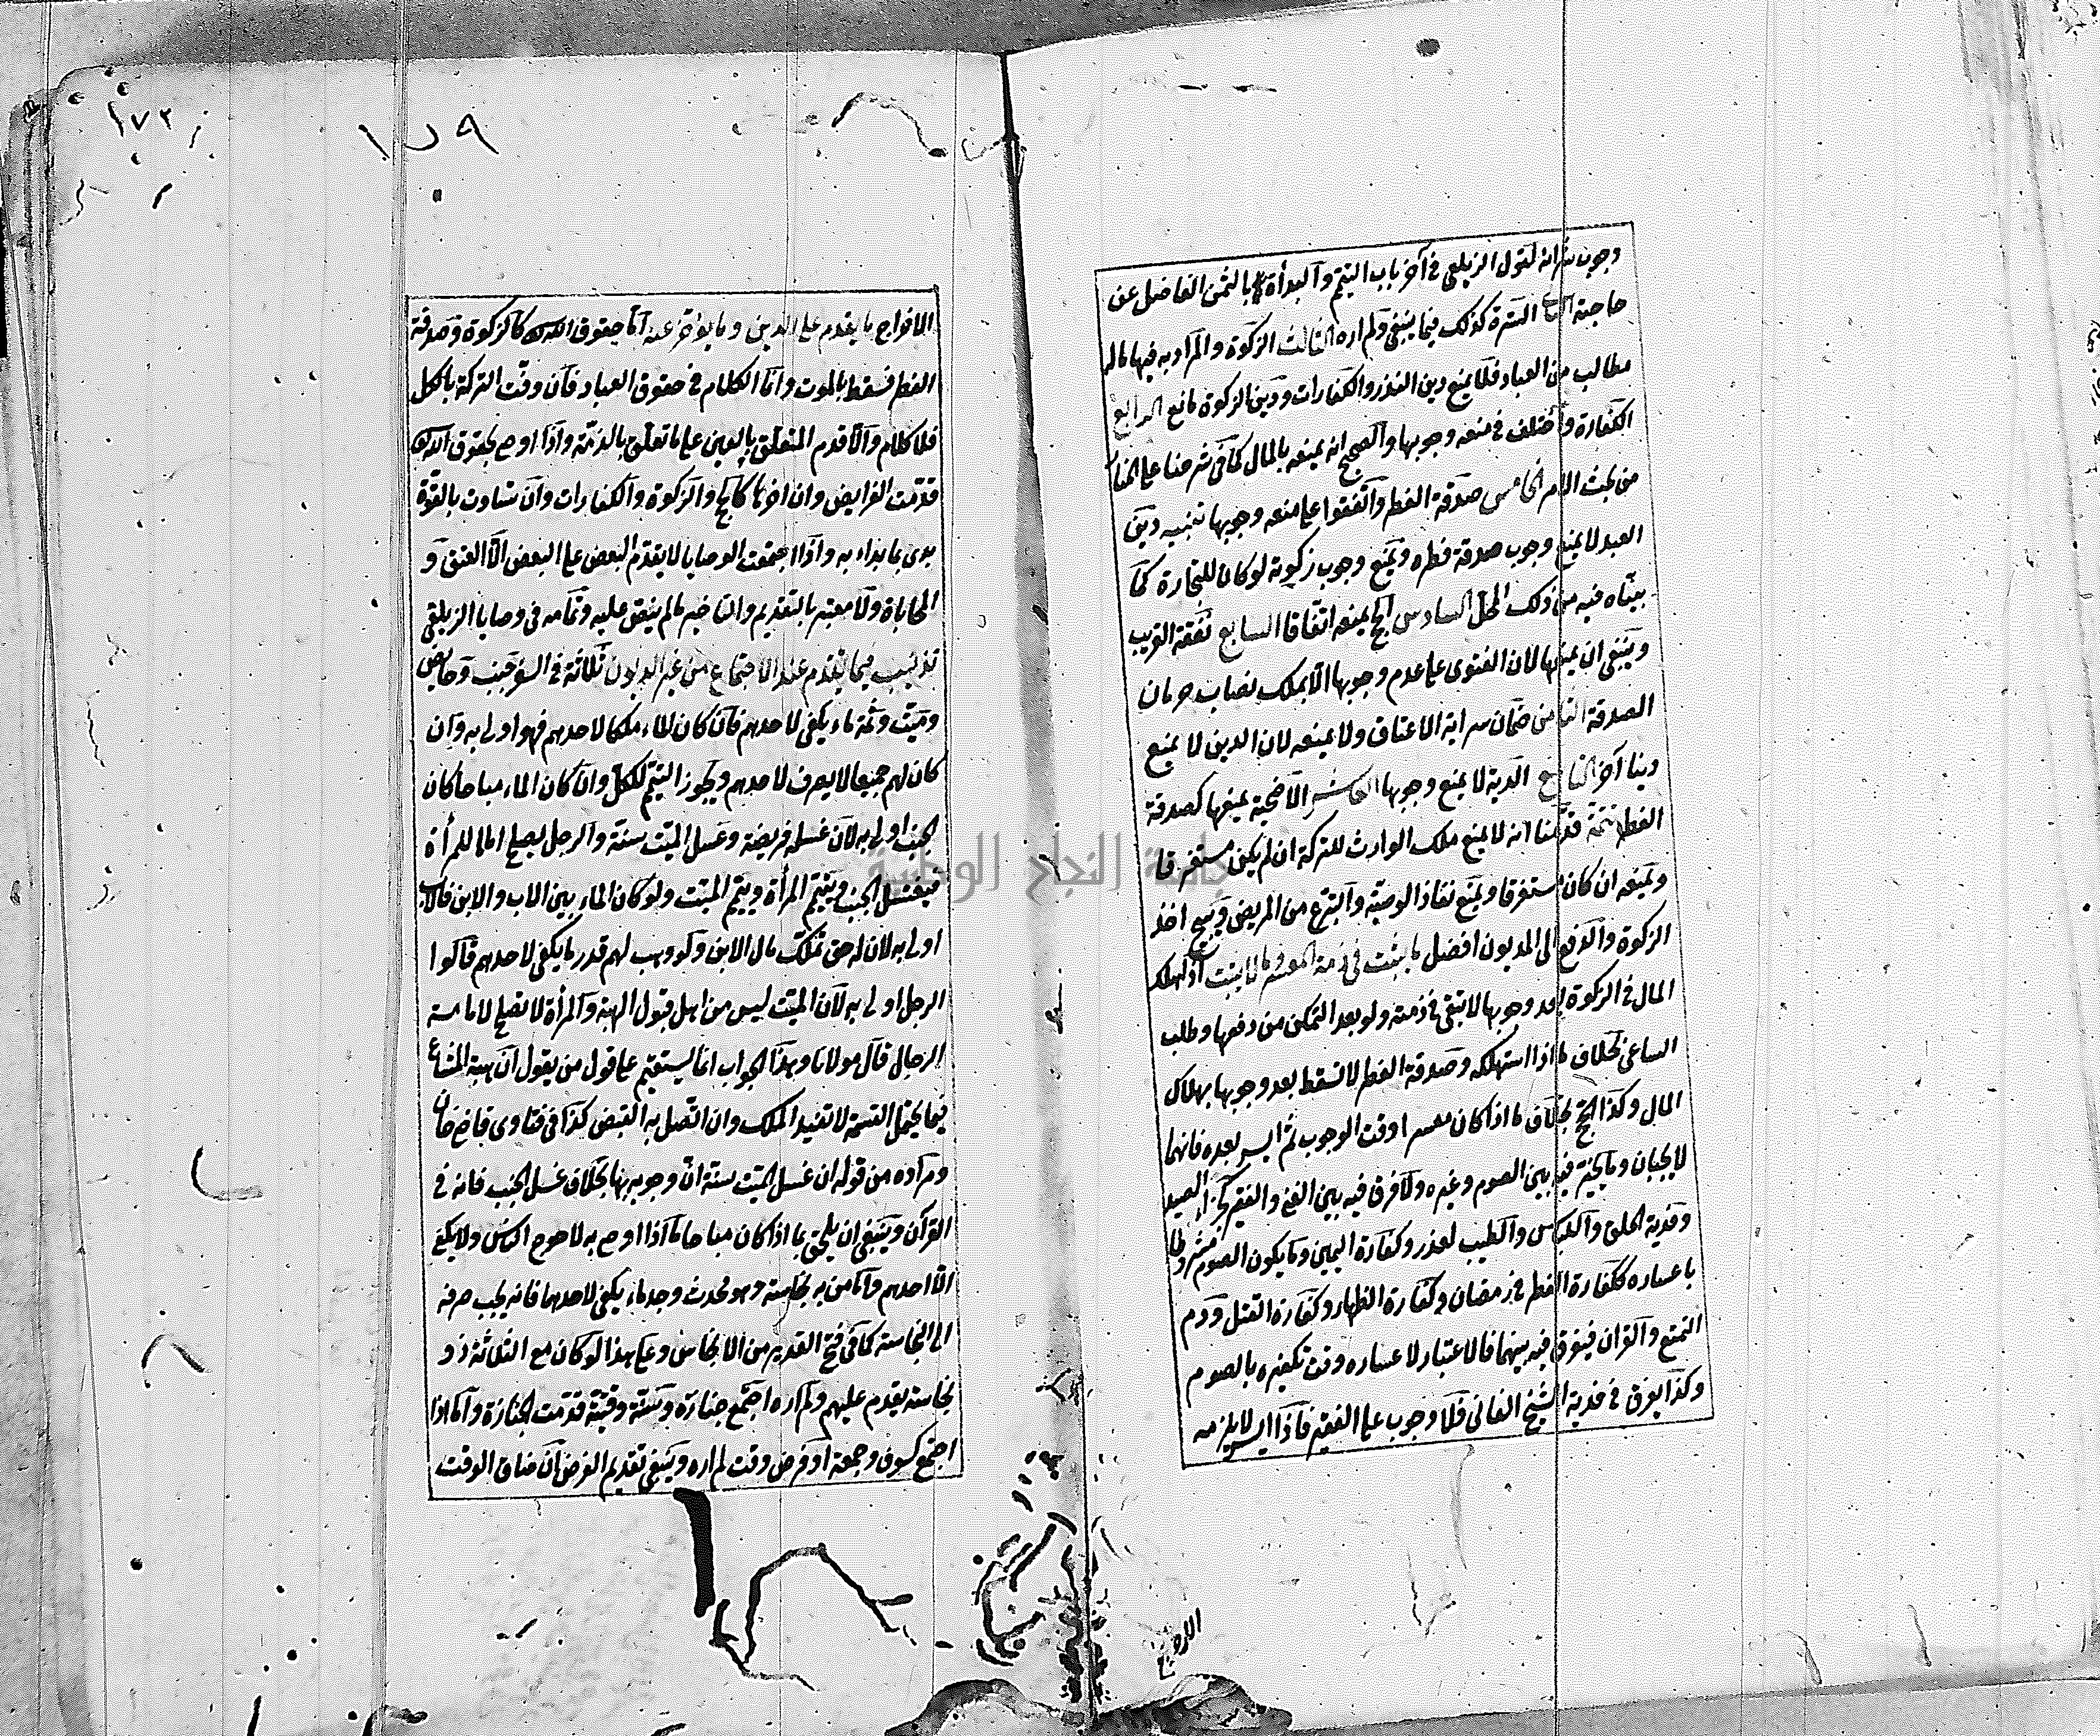 وجوب شرائه لقول الزيلعي في آخر باب التيمم والمرأة بالثمن الفاضل عن
حاجته الثاني السترة كذلك فيما ينبغي ولم اره الثالث الزكوة والمراد به فيها ماله
مطالب من العباد فلا يمنع دين النذر والكفارات ودين الزكوة مانع الرابع
الكفارة واختلف في منعه وجوبها والصحيح انه يمنعه بالمال كما في شرحنا على المنار
من بحث الامر الخامس صدقة الفطر واتفقوا على منعه وجوبها تنبيه دين
العبد لا يمنع وجوب صدقة فطره ويمنع وجوب زكوته لو كان للتجارة كما
بيناه فيه من ذلك المحل السادس الحج يمنعه اتفاقا السابع نفقة القريب
وينبغي ان يمنعها لان الفتوى على عدم وجوبها الا بملك نصاب حرمان
الصدقة الثامن ضمان سراية الاعتاق ولا يمنعه لان الدين لا يمنع
دينا آخر التاسع الدية لا يمنع وجوبها العاشر الاضحية يمنعها كصدقة
الفطر تتمة قدمنا انه لا يمنع ملك الوارث للتركة ان لم يكن مستغرقا
ويمنعه ان كان مستغرقا ويمنع نفاذ الوصية والتبرع من المريض ويبيح اخذ
الزكوة والدفع الى المديون افضل ما يثبت في ذمة المعسر وما لا يثبت اذا هلك
المال في الزكوة بعد وجوبها لا تبقى في ذمته ولو بعد التمكن من دفعها وطلب
الساعي بخلاف ما اذا استهلكه وصدقة الفطر لا تسقط بعد وجوبها بهلاك
المال وكذا الحج بخلاف ما اذا كان معسرا وقت الوجوب ثم ايسر بعده فانهما
لا يجبان وما يخير فيه بين الصوم وغيره ولا فرق فيه بين الغني والفقير كجزاء الصيد
وفدية الحلق واللباس والطيب لعذر وكفارة اليمين وما يكون الصوم مشروطا
باعساره ككفارة الفطر في رمضان وكفارة الظهار وكفارة القتل ودم
التمتع والقران فيفرق فيه بينهما فالاعتبار لاعساره وقت تكفيره بالصوم
وكذا يفرق في فدية الشيخ الفاني فلا وجوب على الفقير فاذا ايسر لا يلزمه
١٧٢
١٧٩
الاخراج ما يقدم على الدين وما يؤخر عنه اما حقوق الله كالزكوة وصدقة
الفطر فتسقط بالموت وانما الكلام في حقوق العباد فان وفت التركة بالكل
فلا كلام والا قدم المتعلق بالعين على ما تعلق بالذمة واذا اوصى بحقوق الله
قدمت الفرايض وان اخرها كالحج والزكوة والكفارات وان تساوت بالقوة
بدئ بما بداء به واذا اجتمعت الوصايا لا يقدم البعض على البعض الا العتق و
المحاباة ولا معتبر بالتقديم والتاخير مالم ينص عليه وتمامه في وصايا الزيلعي
تذنيب فيما يقدم عند الاجتماع من غير الديون ثلاثة في السفر جنب وحايض
وميت وثمة ماء يكفي لاحدهم فان كان الماء ملكا لاحدهم فهو اولى به وان
كان لهم جميعا لا يصرف لاحدهم ويجوز التيمم للكل وان كان الماء مباحا كان
الجنب اولى به لان غسله فريضة وغسل الميت سنة والرجل يصلح اماما للمرأة
فيغتسل الجنب وتتيمم المرأة وييمم الميت ولو كان الماء بين الاب والابن فالاب
اولى به لان له حق تملك مال الابن ولو وهب لهم قدر ما يكفي لاحدهم قالوا
الرجل اولى به لان الميت ليس من اهل قبول الهبة والمرأة لا تصلح لامامة
الرجال قال مولانا وهذا الجواب انما يستقيم على قول من يقول ان هبة المشاع
فيما يحتمل القسمة لا تفيد الملك وان اتصل به القبض كذا في فتاوى قاضي خان
ومراده من قوله ان غسل الميت سنة ان وجوبه بها بخلاف غسل الجنب فانه في
القرآن وينبغي ان يلحق بما اذا كان مباحا ما اذا اوصى به لاحوج الناس ولا يكفي
الا احدهم واما من به نجاسة وهو محدث وجد ماء يكفي لاحدهما فانه يجب صرفه
الى النجاسة كما في فتح القدير من الانجاس وعلى هذا لو كان مع الثلاثة ذو
نجاسة يقدم عليهم ولم اره اجتمع جنازة وسنة وقتية قدمت الجنازة واما اذا
اجتمع كسوف وجمعة او فرض وقت لم اره وينبغي تقديم الفرض ان ضاق الوقت
جامعة النجاح الوطنية